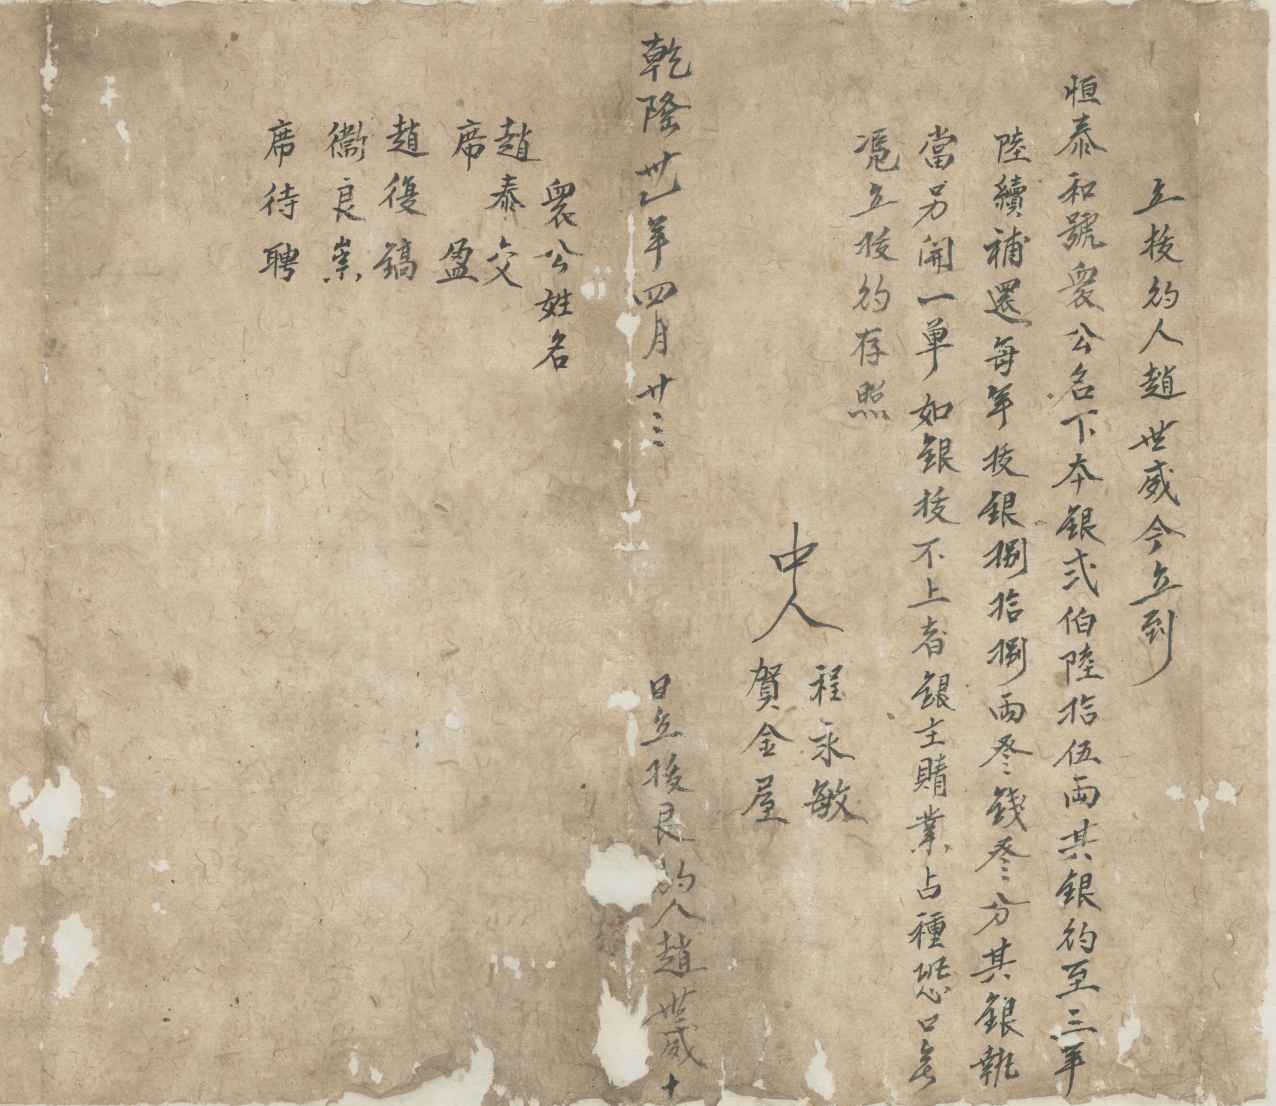 立撥約人趙世威今立到
恒泰和號眾公名下本銀弍伯陸拾伍兩其銀約至三年
陸續補還每年撥銀捌拾捌兩叁錢叁分其銀執
當另開一單如銀撥不上者銀主賭業占種恐口無
凴立撥約存照
中人
程永敏
賀金屋
乾隆卅年四月廿三日立撥艮約人趙世威十
眾公姓名
趙泰交
席盈
趙復鎬
衛良
席待聘